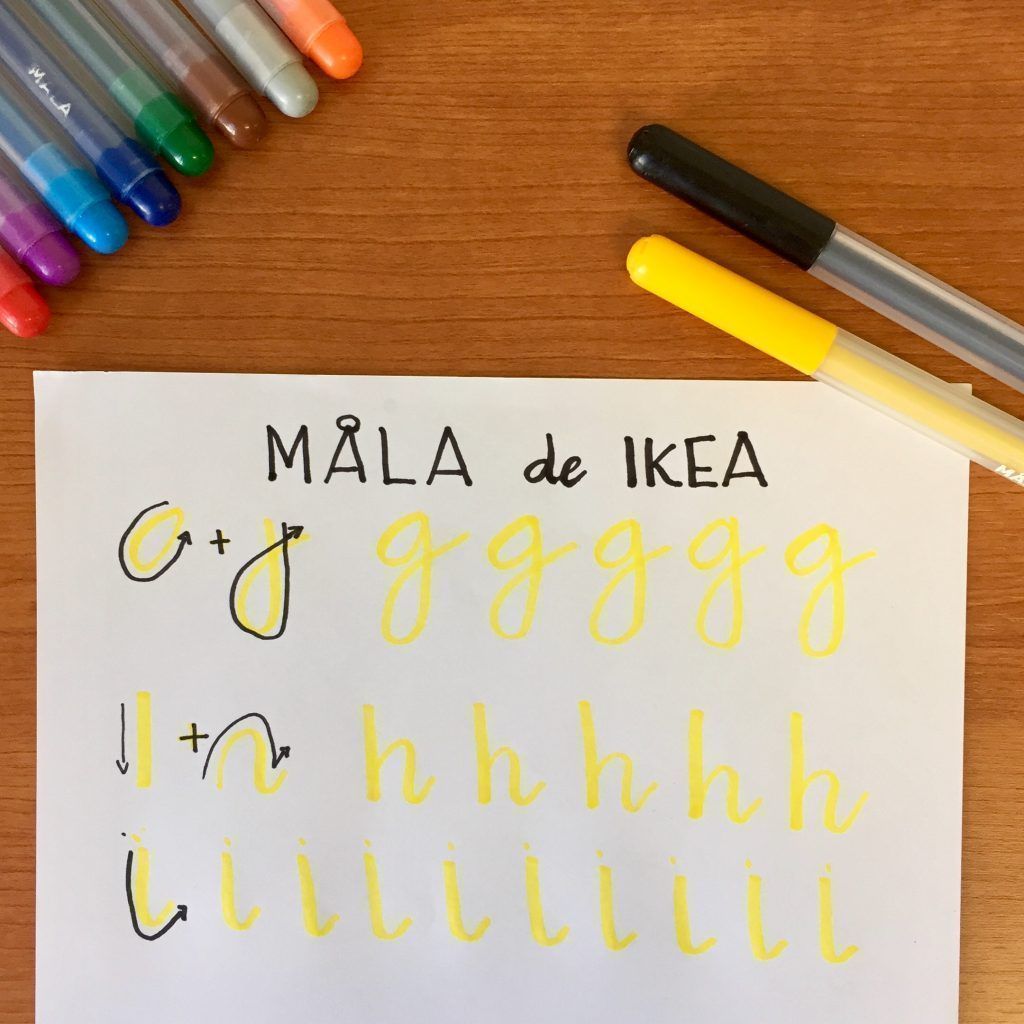 MÅLA
MÅLA de IKEA
o + j g g g g g
l + n h h h h h
i i i i i i i i i i